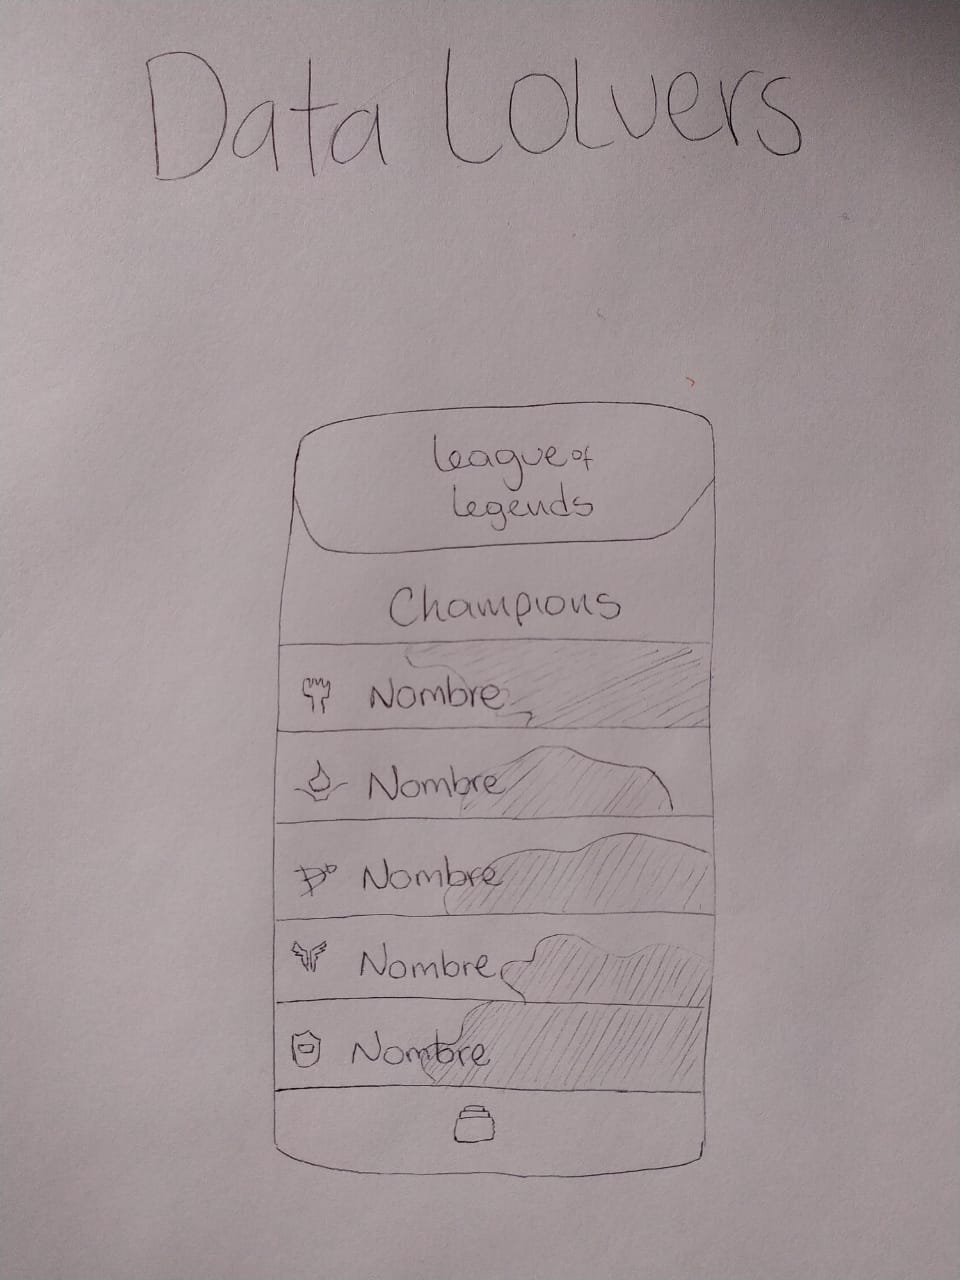 Data LOLvers
League of
Legends
Champions
Nombre
Nombre
Nombre
Nombre
Nombre